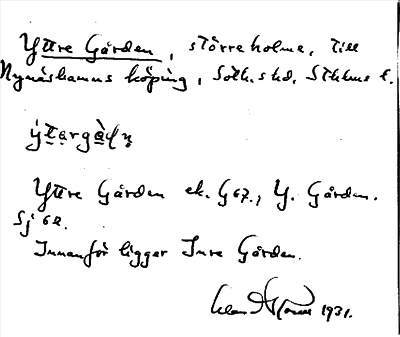 Yttre Gården, större holme, till
Nynäshamns köping, Soth. hd, Sthlms l.
Yttre Gården ek. G 67., Y. Gården.
Sj 62.
Innanför ligger Inre Gården.
1931.